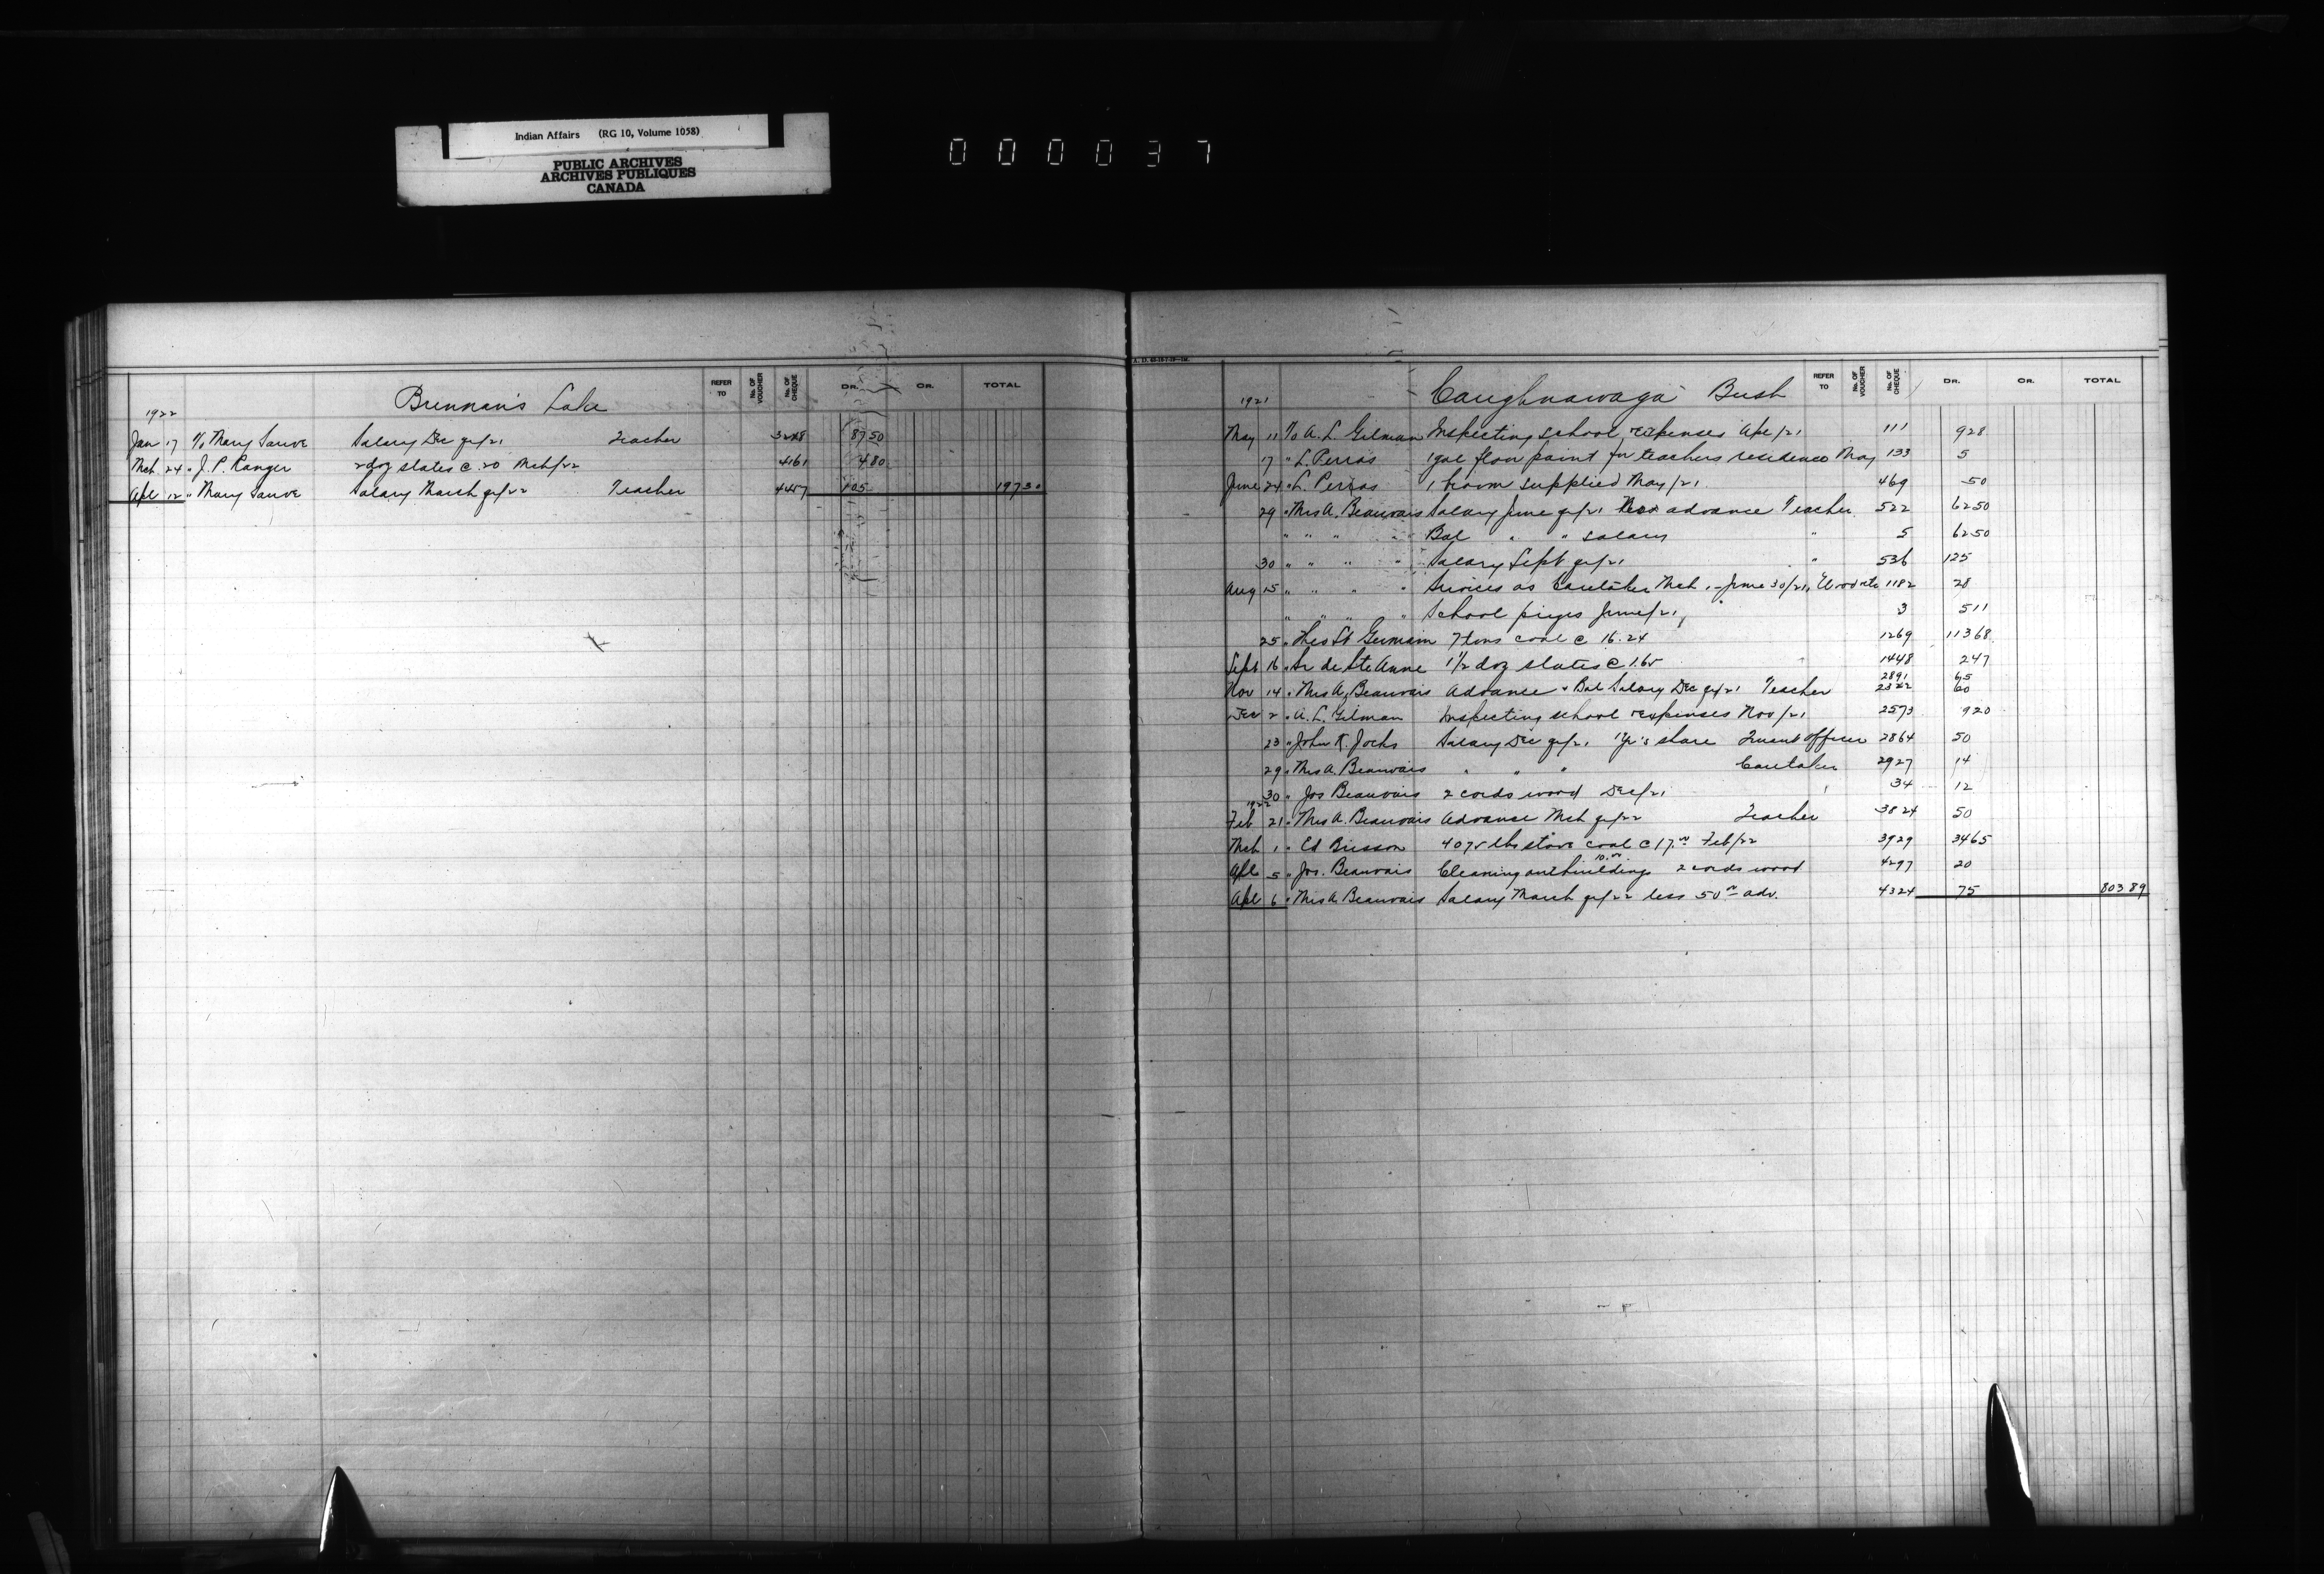 Indian Affairs (RG 10, Volume 1058)
PUBLIC ARCHIVES
ARCHIVES PUBLIQUES
CANADA
000037
Brennan's Lake
REFER TO No. OF VOUCHER No. OF CHEQUE DR. CR. TOTAL
1922
Jan 17 T/o Mary Sauve Salary Dec qr/21 Teacher 3248 87 50
Mch 24 " J. P. Ranger 2 doz slates @ .20 Mch/22 4161 4 80
Apl 12 " Mary Sauve Salary March qr/22 Teacher 4457 105 197 30
Caughnawaga Bush
REFER TO No. OF VOUCHER No. OF CHEQUE DR. CR. TOTAL
1921
May 11 T/o A. L. Gilman Inspecting school, expenses Apl/21 111 9 28
17 " L. Perras 1 gal floor paint for teachers residence May 133 5
June 24 " L. Perras 1 broom supplied May/21 469 50
29 " Mrs A. Beauvais Salary June qr/21 advance Teacher 522 62 50
" " " " Bal " " salary " 5 62 50
30 " " " " Salary Sept qr/21 " 536 125
Aug 15 " " " " Services as Caretaker Mch - June 30/21, 1182 28
" " " " School prizes June/21 3 5 11
25 " Thos St Germain 7 tons coal @ 16.24 1269 113 68
Sept 16 " Sr de Ste Anne 1 1/2 doz slates @ 1.65 1448 2 47
Nov 14 " Mrs A. Beauvais Advance & Bal Salary Dec qr/21 Teacher 2891 65
2322 60
Dec 2 " A. L. Gilman Inspecting school expenses Nov/21 2573 9 20
23 " John K. Jocks Salary Dec qr/21 1 yr's share Truant Officer 2864 50
29 " Mrs A. Beauvais " " " Caretaker 2927 14
30 " Jos Beauvais 2 cords wood Dec/21 34 12
1922
Feb 21 " Mrs A. Beauvais Advance Mch qr/22 Teacher 3824 50
Mch 1 " Ed Brisson 4075 lbs stove coal @ 17.00 Feb/22 3929 34 65
Apl 5 " Jos. Beauvais Cleaning outbuildings 10.00 2 cords wood 4297 20
Apl 6 " Mrs A Beauvais Salary March qr/22 less 50.00 adv. 4324 75 803 89